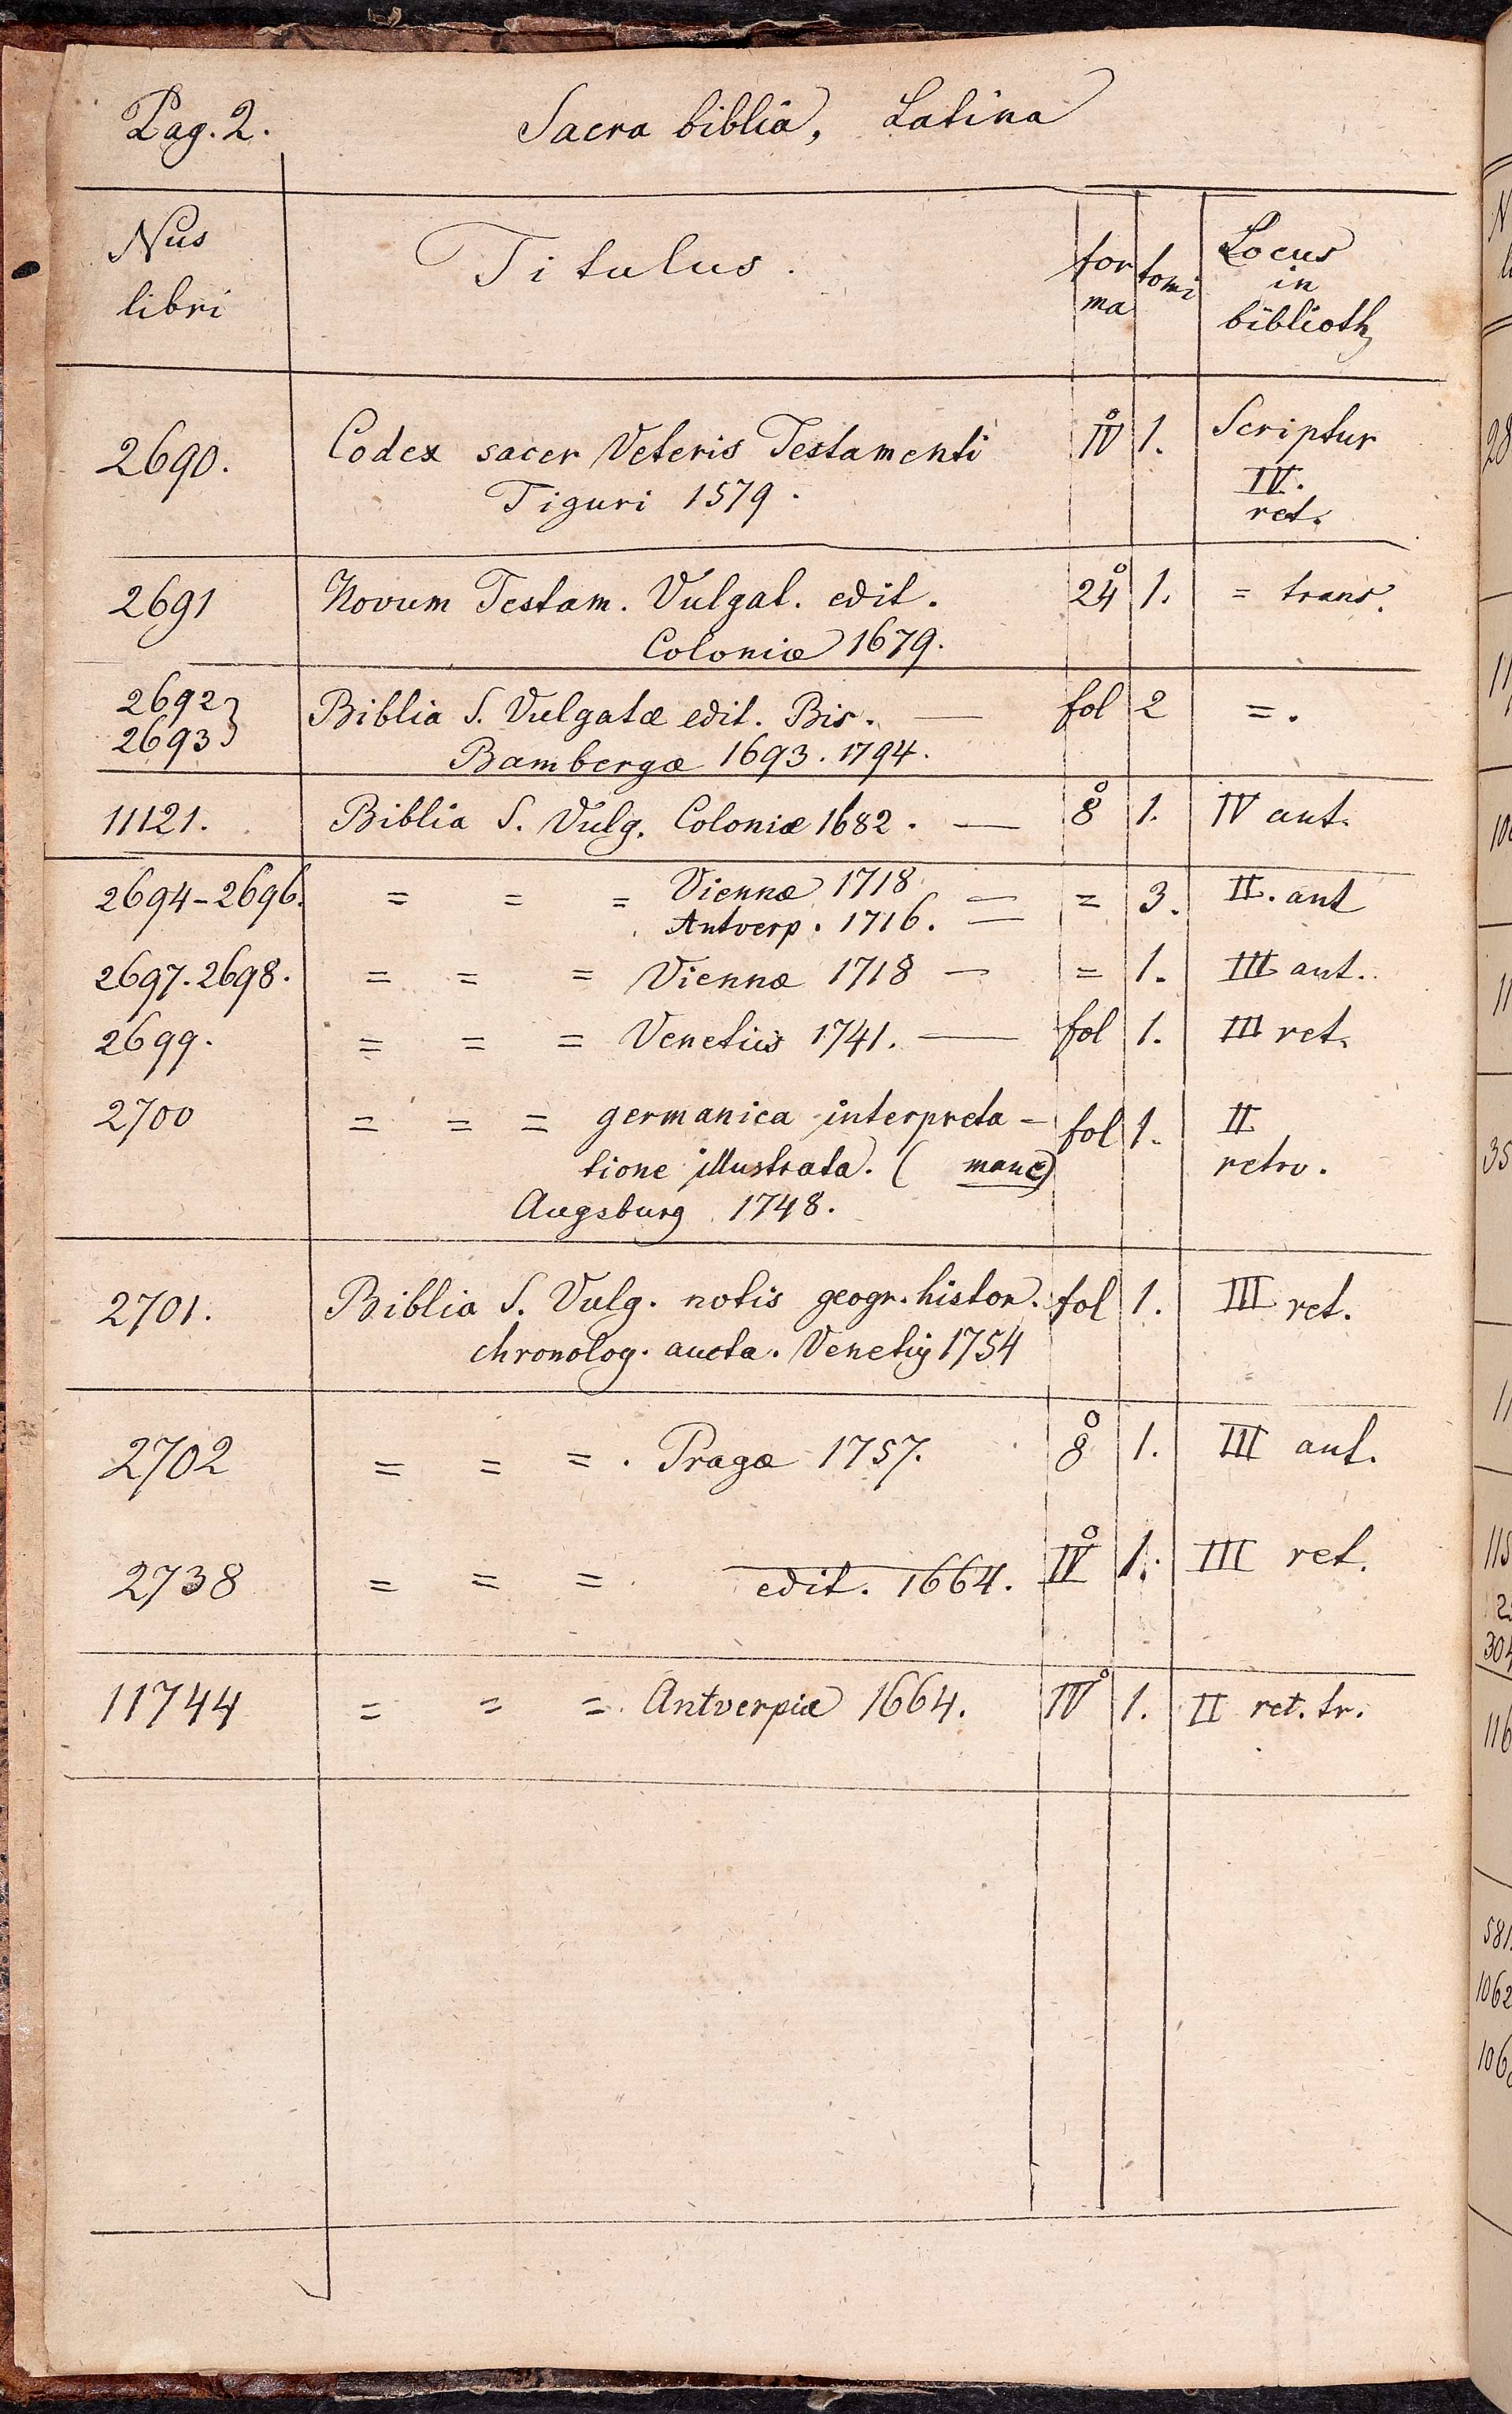 Pag. 2. Sacra biblia, Latina
Nus
libri
Titulus.
for
ma
tomi
Locus
in
biblioth
2690. Codex sacer Veteris Testamenti IVº 1. Scriptur
Tiguri 1579. IV.
ret.
2691 Novum Testam. Vulgat. edit. 24º 1. = trans.
Coloniæ 1679.
2692 } Biblia S. Vulgatæ edit. Bis. — fol 2 =.
2693 } Bambergæ 1693. 1794.
11121. Biblia S. Vulg. Coloniæ 1682. — 8º 1. IV ant.
2694-2696. = = = Viennæ 1718 — = 3. II. ant
Antverp. 1716. —
2697. 2698. = = = Viennæ 1718 — = 1. III ant.
2699. = = = Venetiis 1741. — fol 1. III ret.
2700 = = = germanica interpreta- fol 1. II
tione illustrata. ( manc) retro.
Augsburg 1748.
2701. Biblia S. Vulg. notis geogr. histor. fol 1. III ret.
chronolog. aucta. Venetiis 1754
2702 = = =. Pragæ 1757. 8º 1. III ant.
2738 = = = edit. 1664. IVº 1. III ret.
11744 = = =. Antverpiæ 1664. IVº 1. II ret. tr.